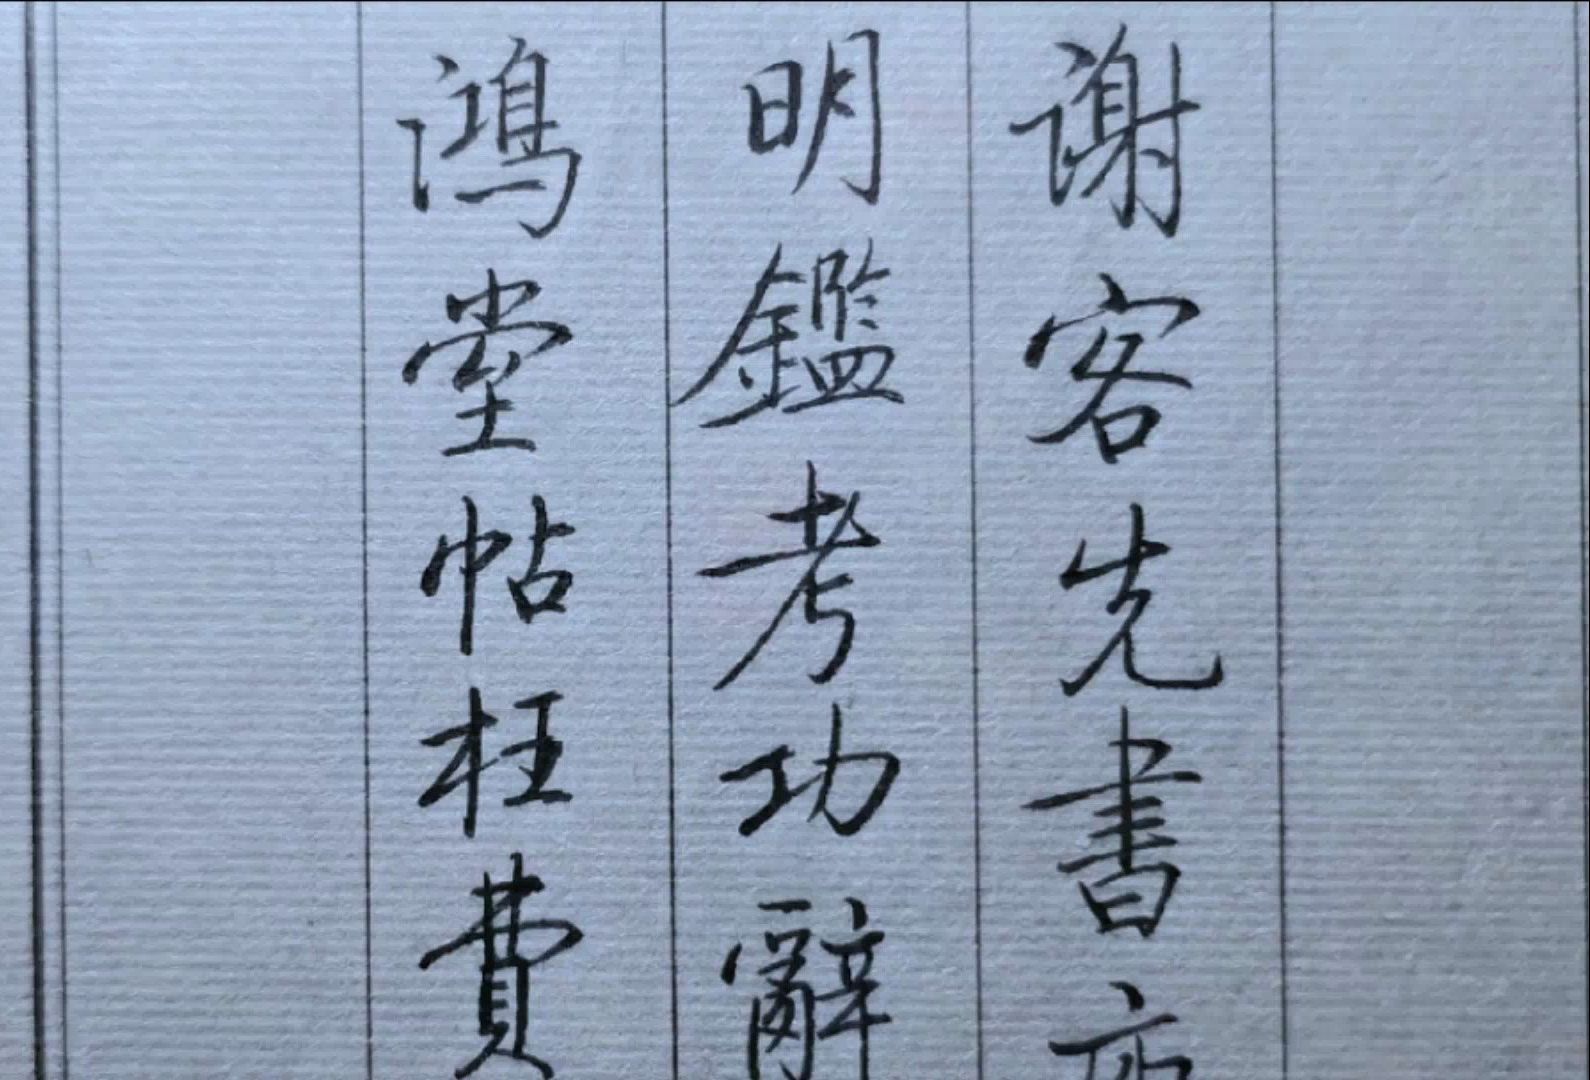 谢客先書
明鑑考功辭
鴻堂帖枉費